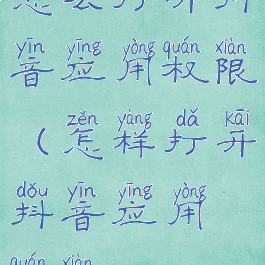 yīn yīng yòng quán xiàn
音应用权限
zěn yàng dǎ kāi
（怎样打开
dǒu yīn yīng yòng
抖音应用
quán xiàn